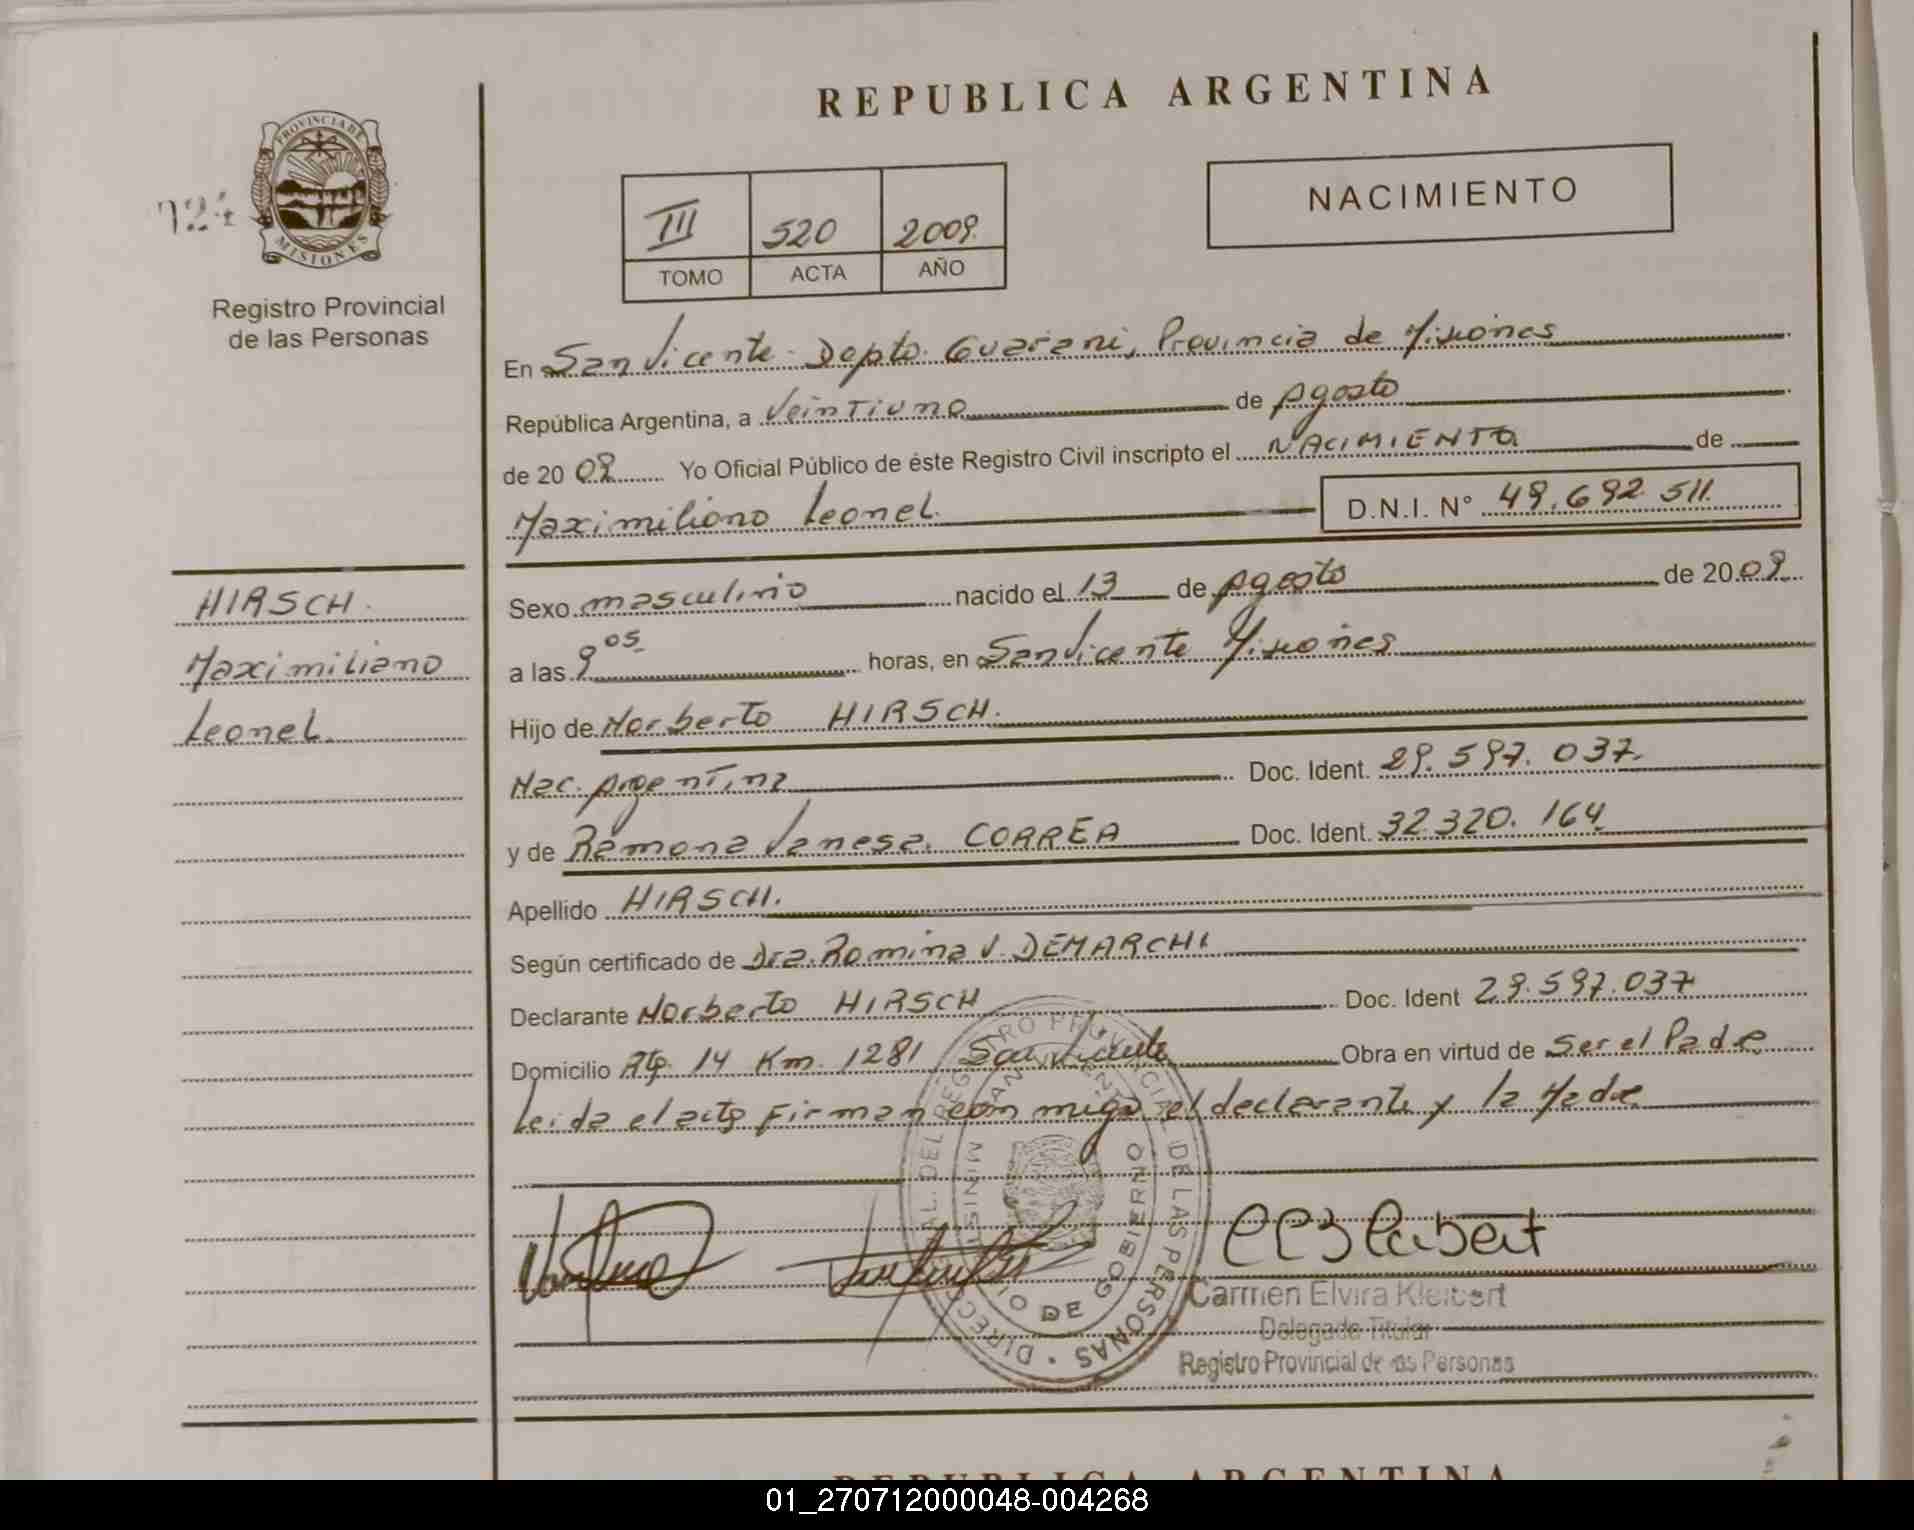 REPUBLICA ARGENTINA
PROVINCIA DE
MISIONES
724
Registro Provincial
de las Personas
III 520 2009
TOMO ACTA AÑO
NACIMIENTO
En San Vicente Depto. Guarani, Provincia de Misiones
República Argentina, a Veintiuno de Agosto
de 20 09 Yo Oficial Público de éste Registro Civil inscripto el NACIMIENTO de
Maximiliano Leonel D.N.I. N° 49.692.511.
HIRSCH.
Maximiliano
Leonel.
Sexo masculino nacido el 13 de Agosto de 20 09
a las 9 05 horas, en San Vicente Misiones
Hijo de Norberto HIRSCH.
Nac. Argentina Doc. Ident. 29.597.037.
y de Ramona Vanesa. CORREA Doc. Ident. 32.320.164
Apellido HIRSCH.
Según certificado de Dra. Romina V. DEMARCHI
Declarante Norberto HIRSCH Doc. Ident 29.597.037
Domicilio Rta. 14 Km. 1281 San Vicente Obra en virtud de Ser el Padre
Leida el acta Firman con migo el declarante y la Madre
DIRECC AL. DEL REGISTRO PROVINCIAL DE LAS PERSONAS
SAN VICENTE
MINIST IO DE GOBIERNO
Carmen Elvira Kleibert
Delegada Titular
Registro Provincial de las Personas
REPUBLICA ARGENTINA
01_270712000048-004268